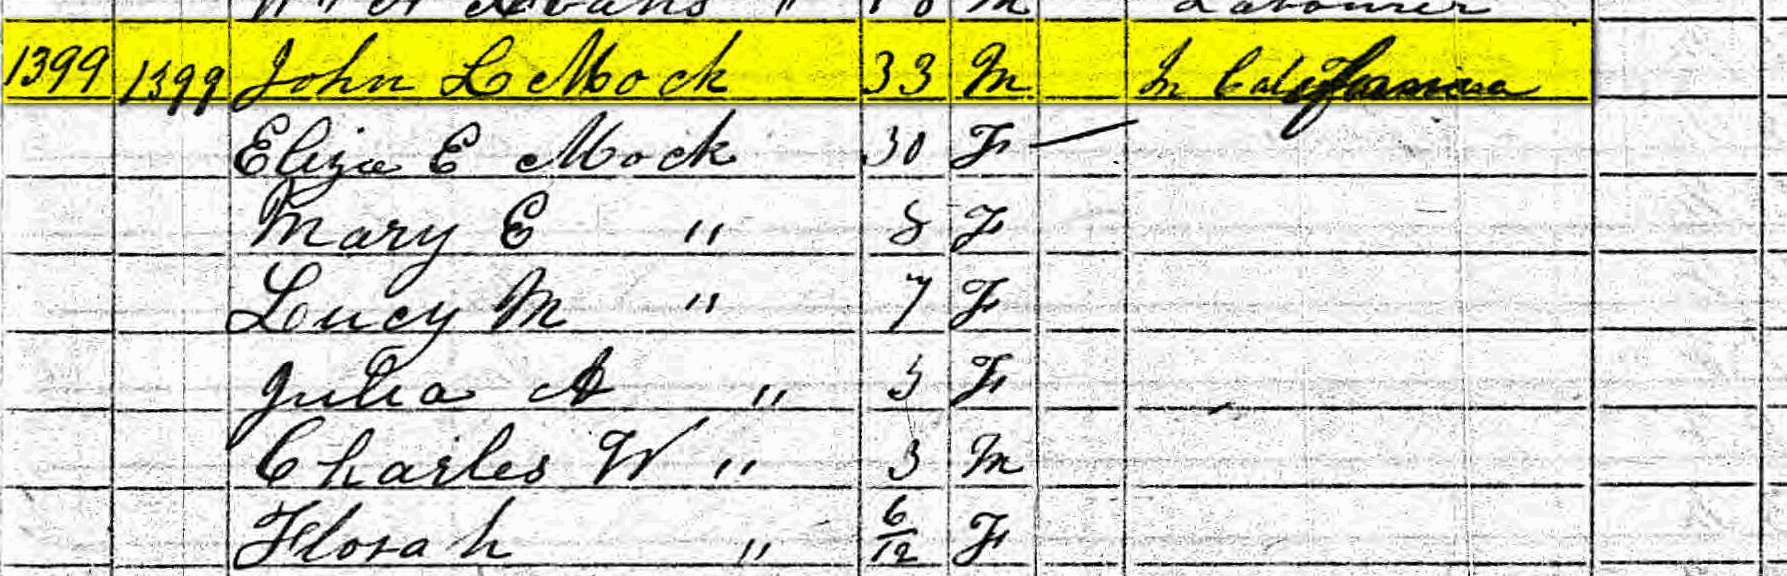 Labourer
1399 1399 John L Mock 33 M In California
Eliza E Mock 30 F
Mary E " 8 F
Lucy M " 7 F
Julia A " 5 F
Charles W " 3 M
Florah " 6/12 F